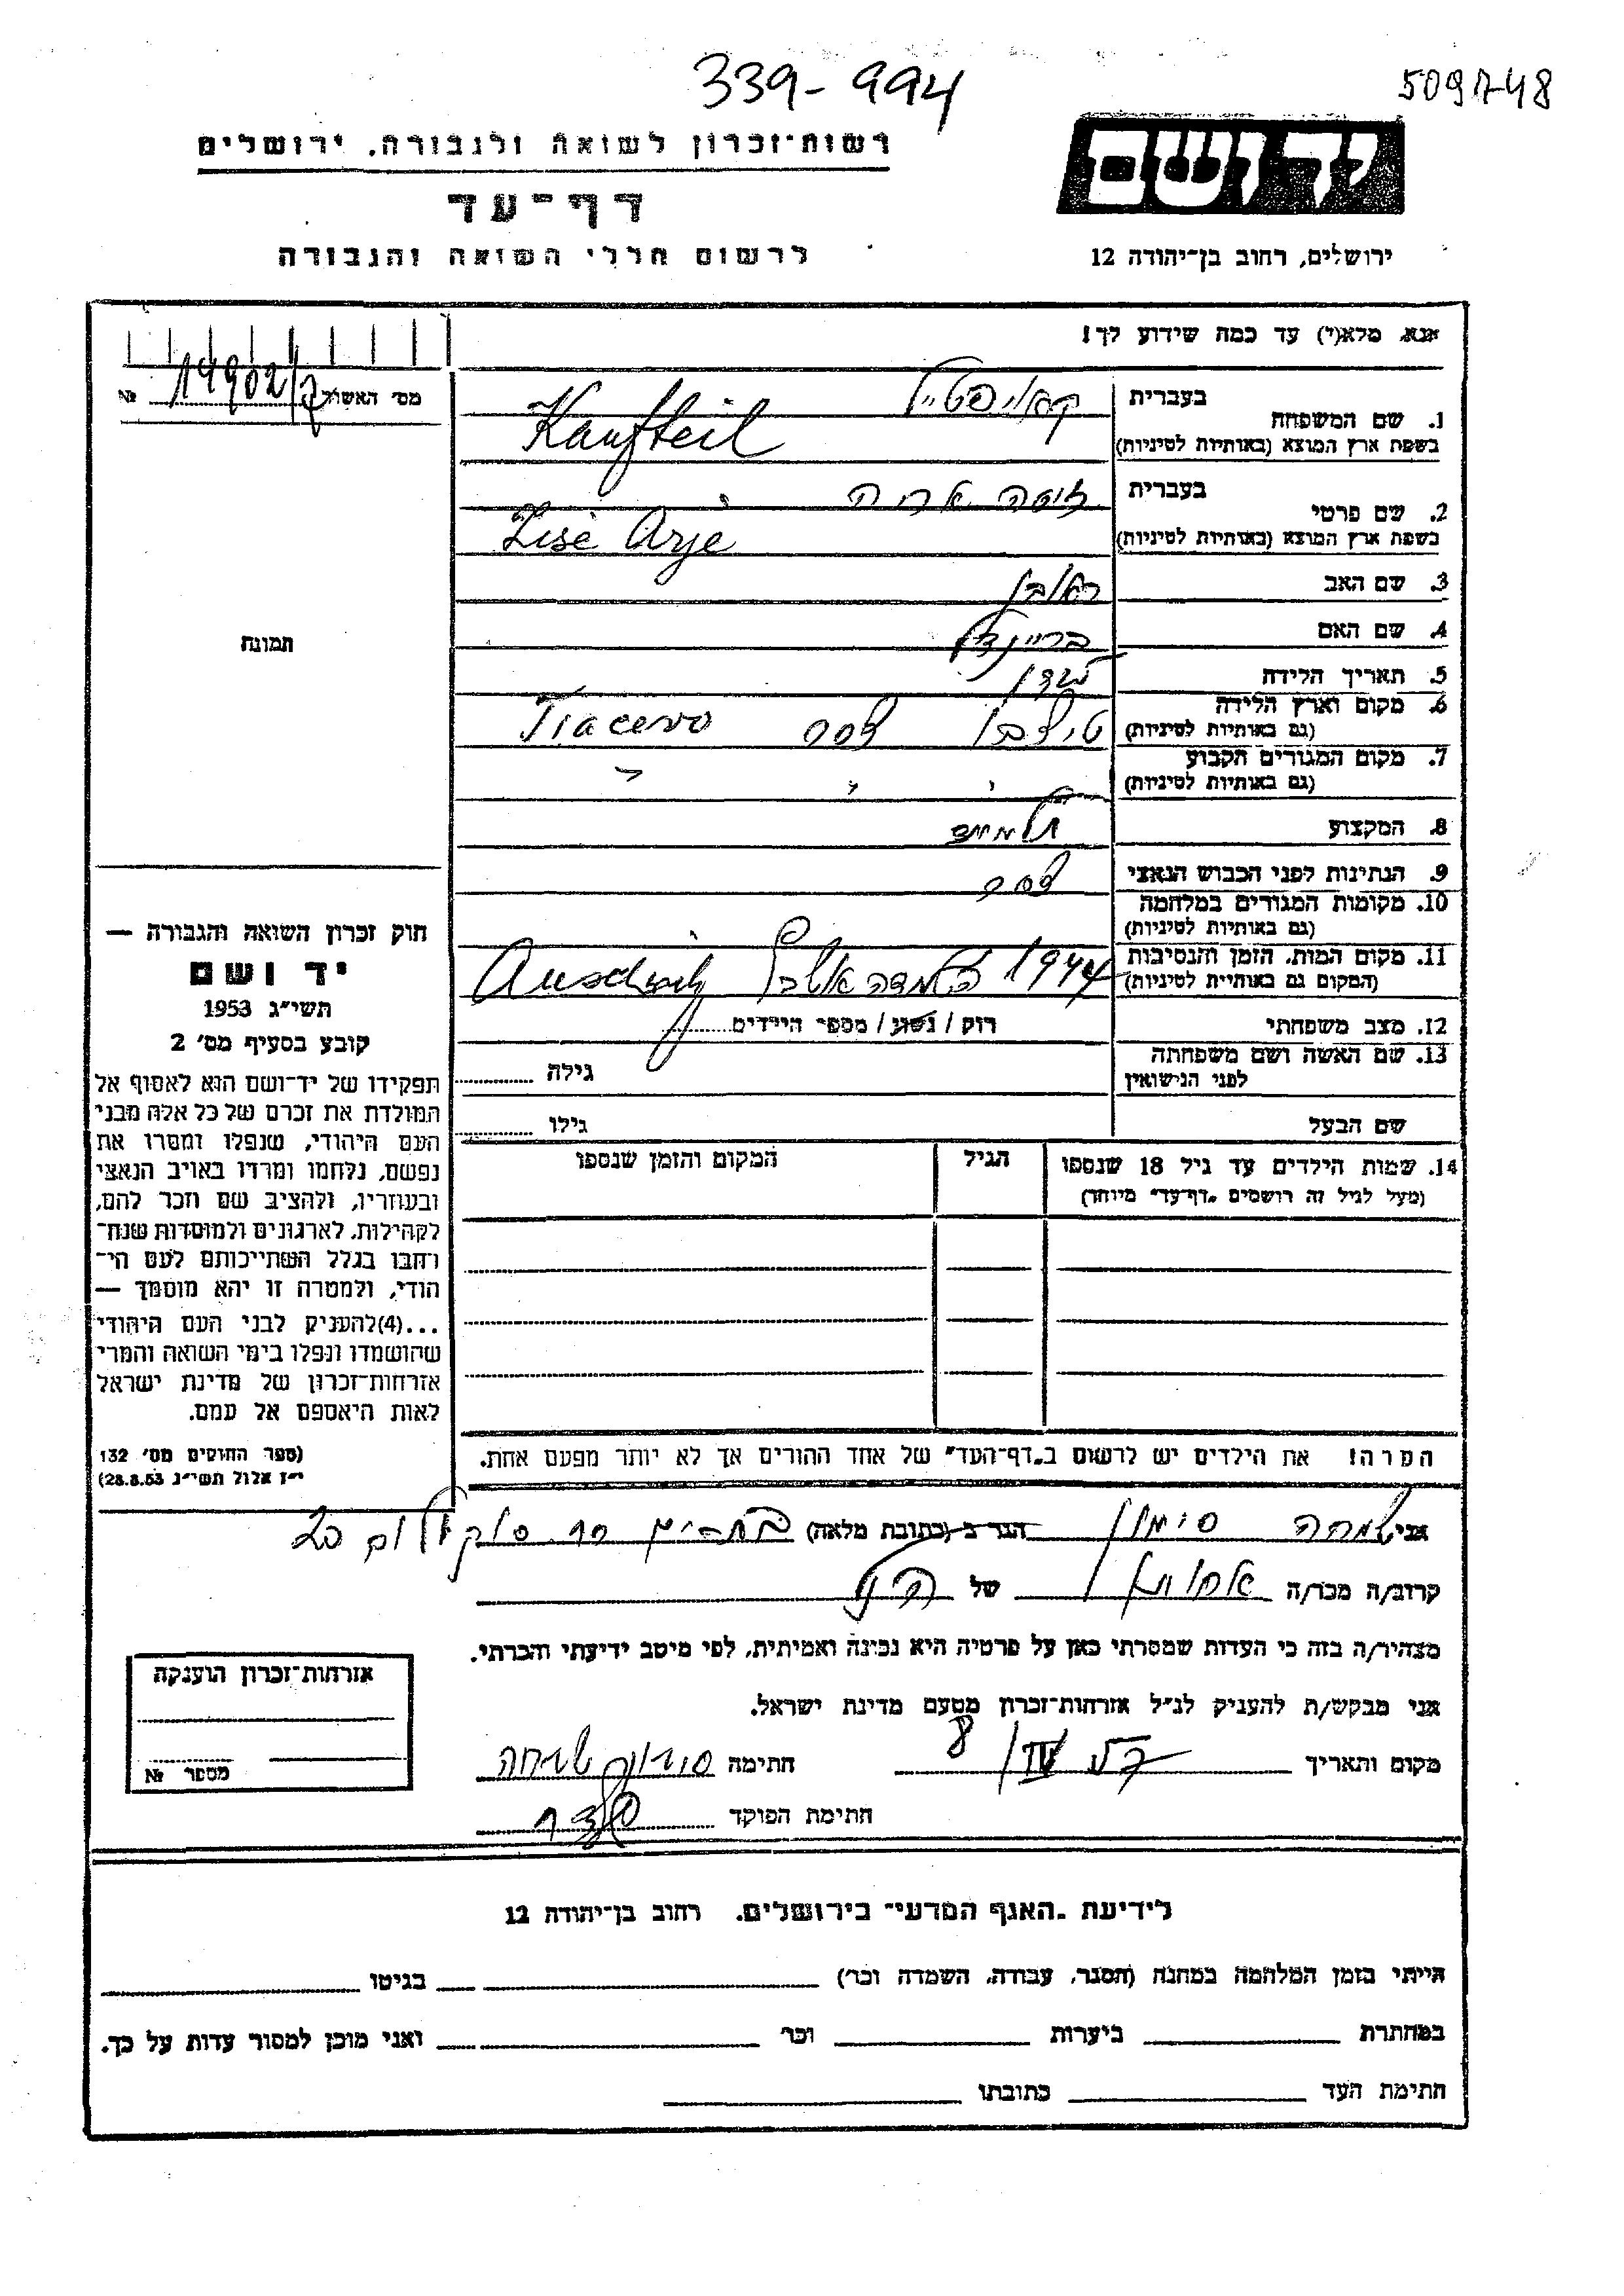 339-994
509748
רשות־זכרון לשואה ולגבורה, ירושלים
דף־עד
לרשום חללי השואה והגבורה
יד ושם
ירושלים, רחוב בן־יהודה 12
אנא, מלא(י) עד כמה שידוע לך!
מס׳ האשור 14902/ №
1. שם המשפחה
בעברית
בשפת ארץ המוצא (באותיות לטיניות)
Kaufteil
2. שם פרטי
בעברית
בשפת ארץ המוצא (באותיות לטיניות)
Zise Arje
3. שם האב ראובן
4. שם האם בריינדל
5. תאריך הלידה
6. מקום וארץ הלידה
(גם באותיות לטיניות)
Tiacevo
7. מקום המגורים הקבוע
(גם באותיות לטיניות)
8. המקצוע תלמיד
9. הנתינות לפני הכבוש הנאצי
10. מקומות המגורים במלחמה
(גם באותיות לטיניות)
11. מקום המות, הזמן והנסיבות 1944
(המקום גם באותיות לטיניות)
12. מצב משפחתי רווק / נשוי / מספר הילדים
13. שם האשה ושם משפחתה
לפני הנישואין
גילה
שם הבעל גילו
14. שמות הילדים עד גיל 18 שנספו הגיל המקום והזמן שנספו
(מעל לגיל זה רושמים „דף־עד״ מיוחד)
הערה! את הילדים יש לרשום ב„דף־העד״ של אחד ההורים אך לא יותר מפעם אחת.
תמונה
חוק זכרון השואה והגבורה —
יד ושם
תשי״ג 1953
קובע בסעיף מס׳ 2
תפקידו של יד־ושם הוא לאסוף אל
המולדת את זכרם של כל אלה מבני
העם היהודי, שנפלו ומסרו את
נפשם, נלחמו ומרדו באויב הנאצי
ובעוזריו, ולהציב שם וזכר להם,
לקהילות, לארגונים ולמוסדות שנח־
רבו בגלל השתייכותם לעם הי־
הודי, ולמטרה זו יהא מוסמך —
...(4)להעניק לבני העם היהודי
שהושמדו ונפלו בימי השואה והמרי
אזרחות־זכרון של מדינת ישראל
לאות היאספם אל עמם.
(ספר החוקים מס׳ 132
י״ז אלול תשי״ג 28.8.53)
אני שמחה סימון הגר ב (כתובת מלאה) בת־ים רח. סוקולוב
קרוב/ה מכר/ה של
מצהיר/ה בזה כי העדות שמסרתי כאן על פרטיה היא נכונה ואמיתית, לפי מיטב ידיעתי והכרתי.
אני מבקש/ת להעניק לנ״ל אזרחות־זכרון מטעם מדינת ישראל.
מקום והתאריך חתימה סימון שמחה
חתימת הפוקד
אזרחות־זכרון הוענקה
מספר №
לידיעת „האגף המדעי״ בירושלים, רחוב בן־יהודה 12
הייתי בזמן המלחמה במחנה (הסגר, עבודה, השמדה וכר) בגיטו
במחתרת ביערות וכר ואני מוכן למסור עדות על כך.
חתימת העד כתובתו